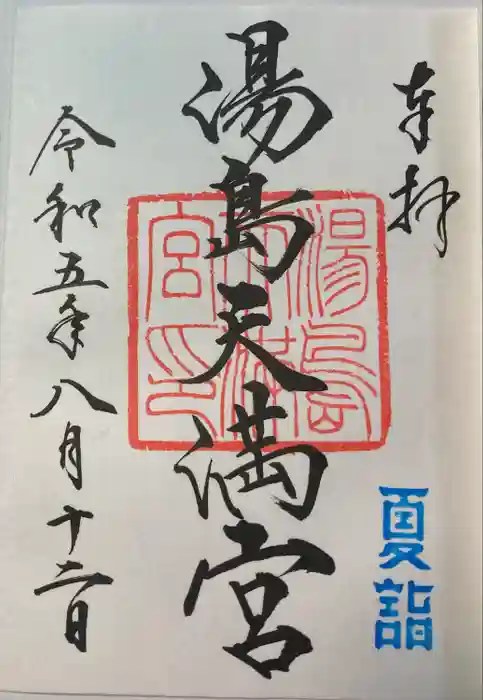 奉拝
夏詣
湯島天満宮
湯島
天満
宮印
令和五年八月十二日